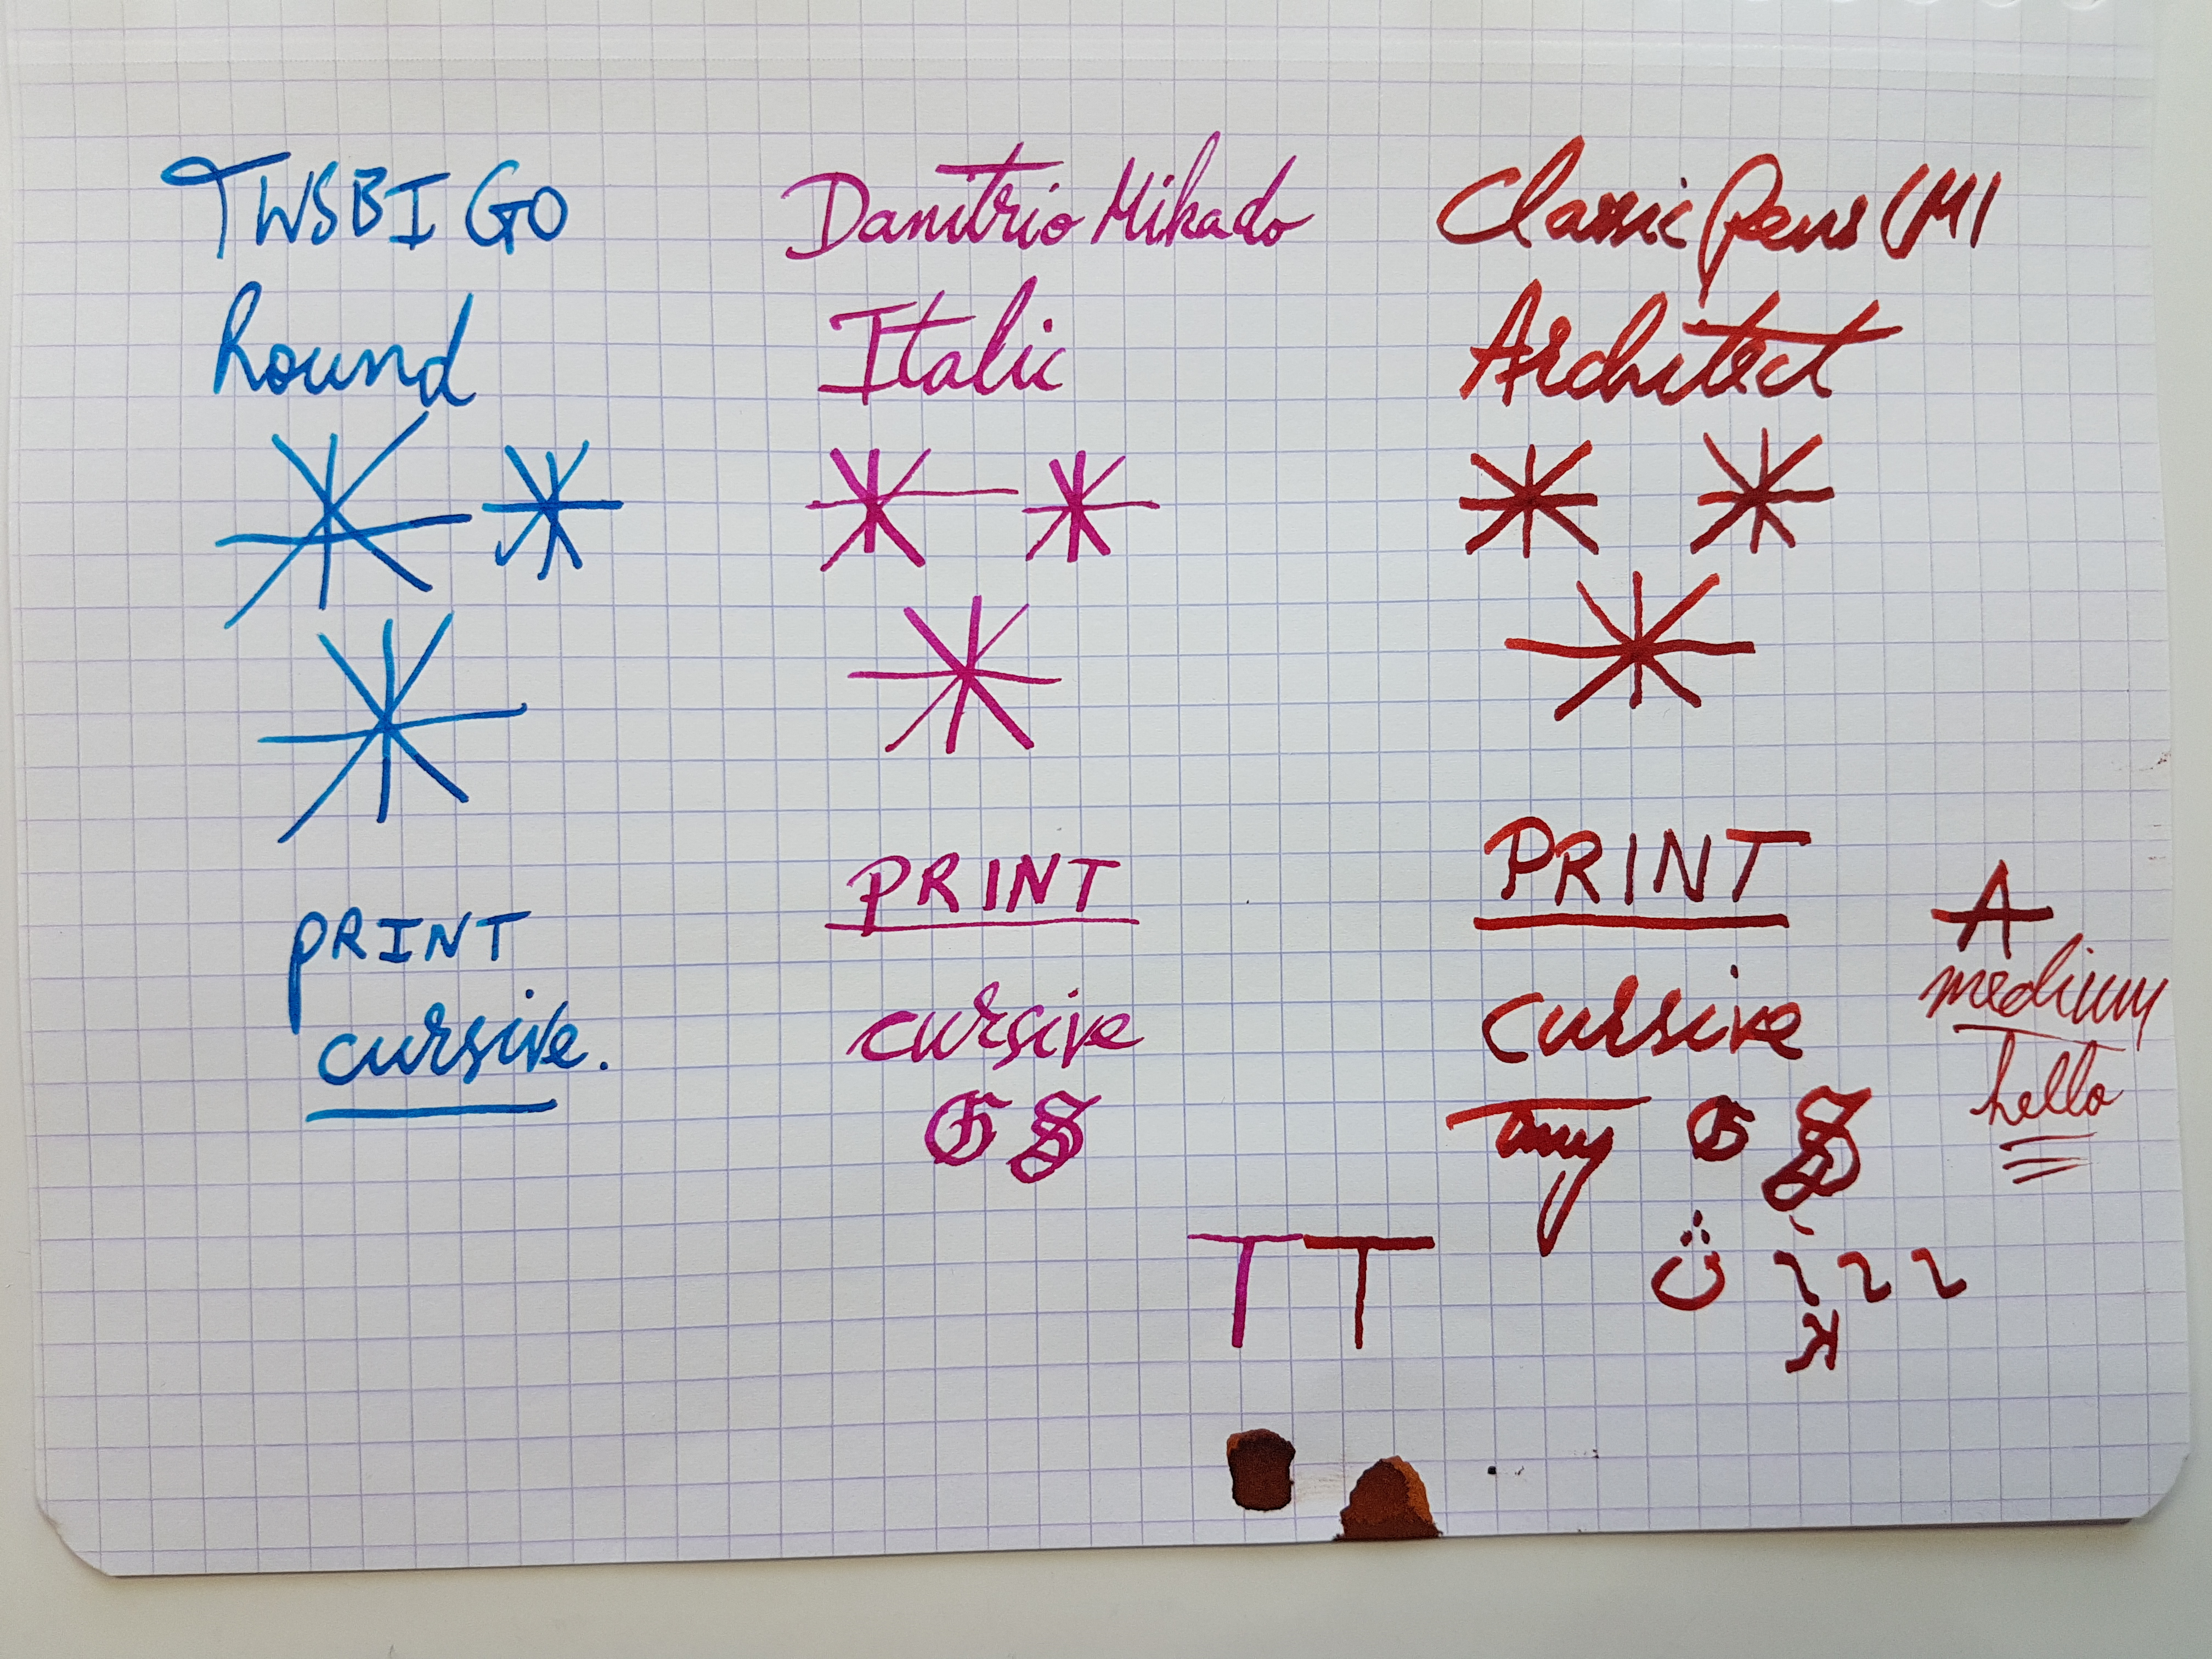 TWSBI GO
Round
PRINT
cursive.
Danitrio Mikado
Italic
PRINT
cursive
G S
T
Classic Pens LM1
Architect
PRINT
cursive
G S
T
A
medium
hello